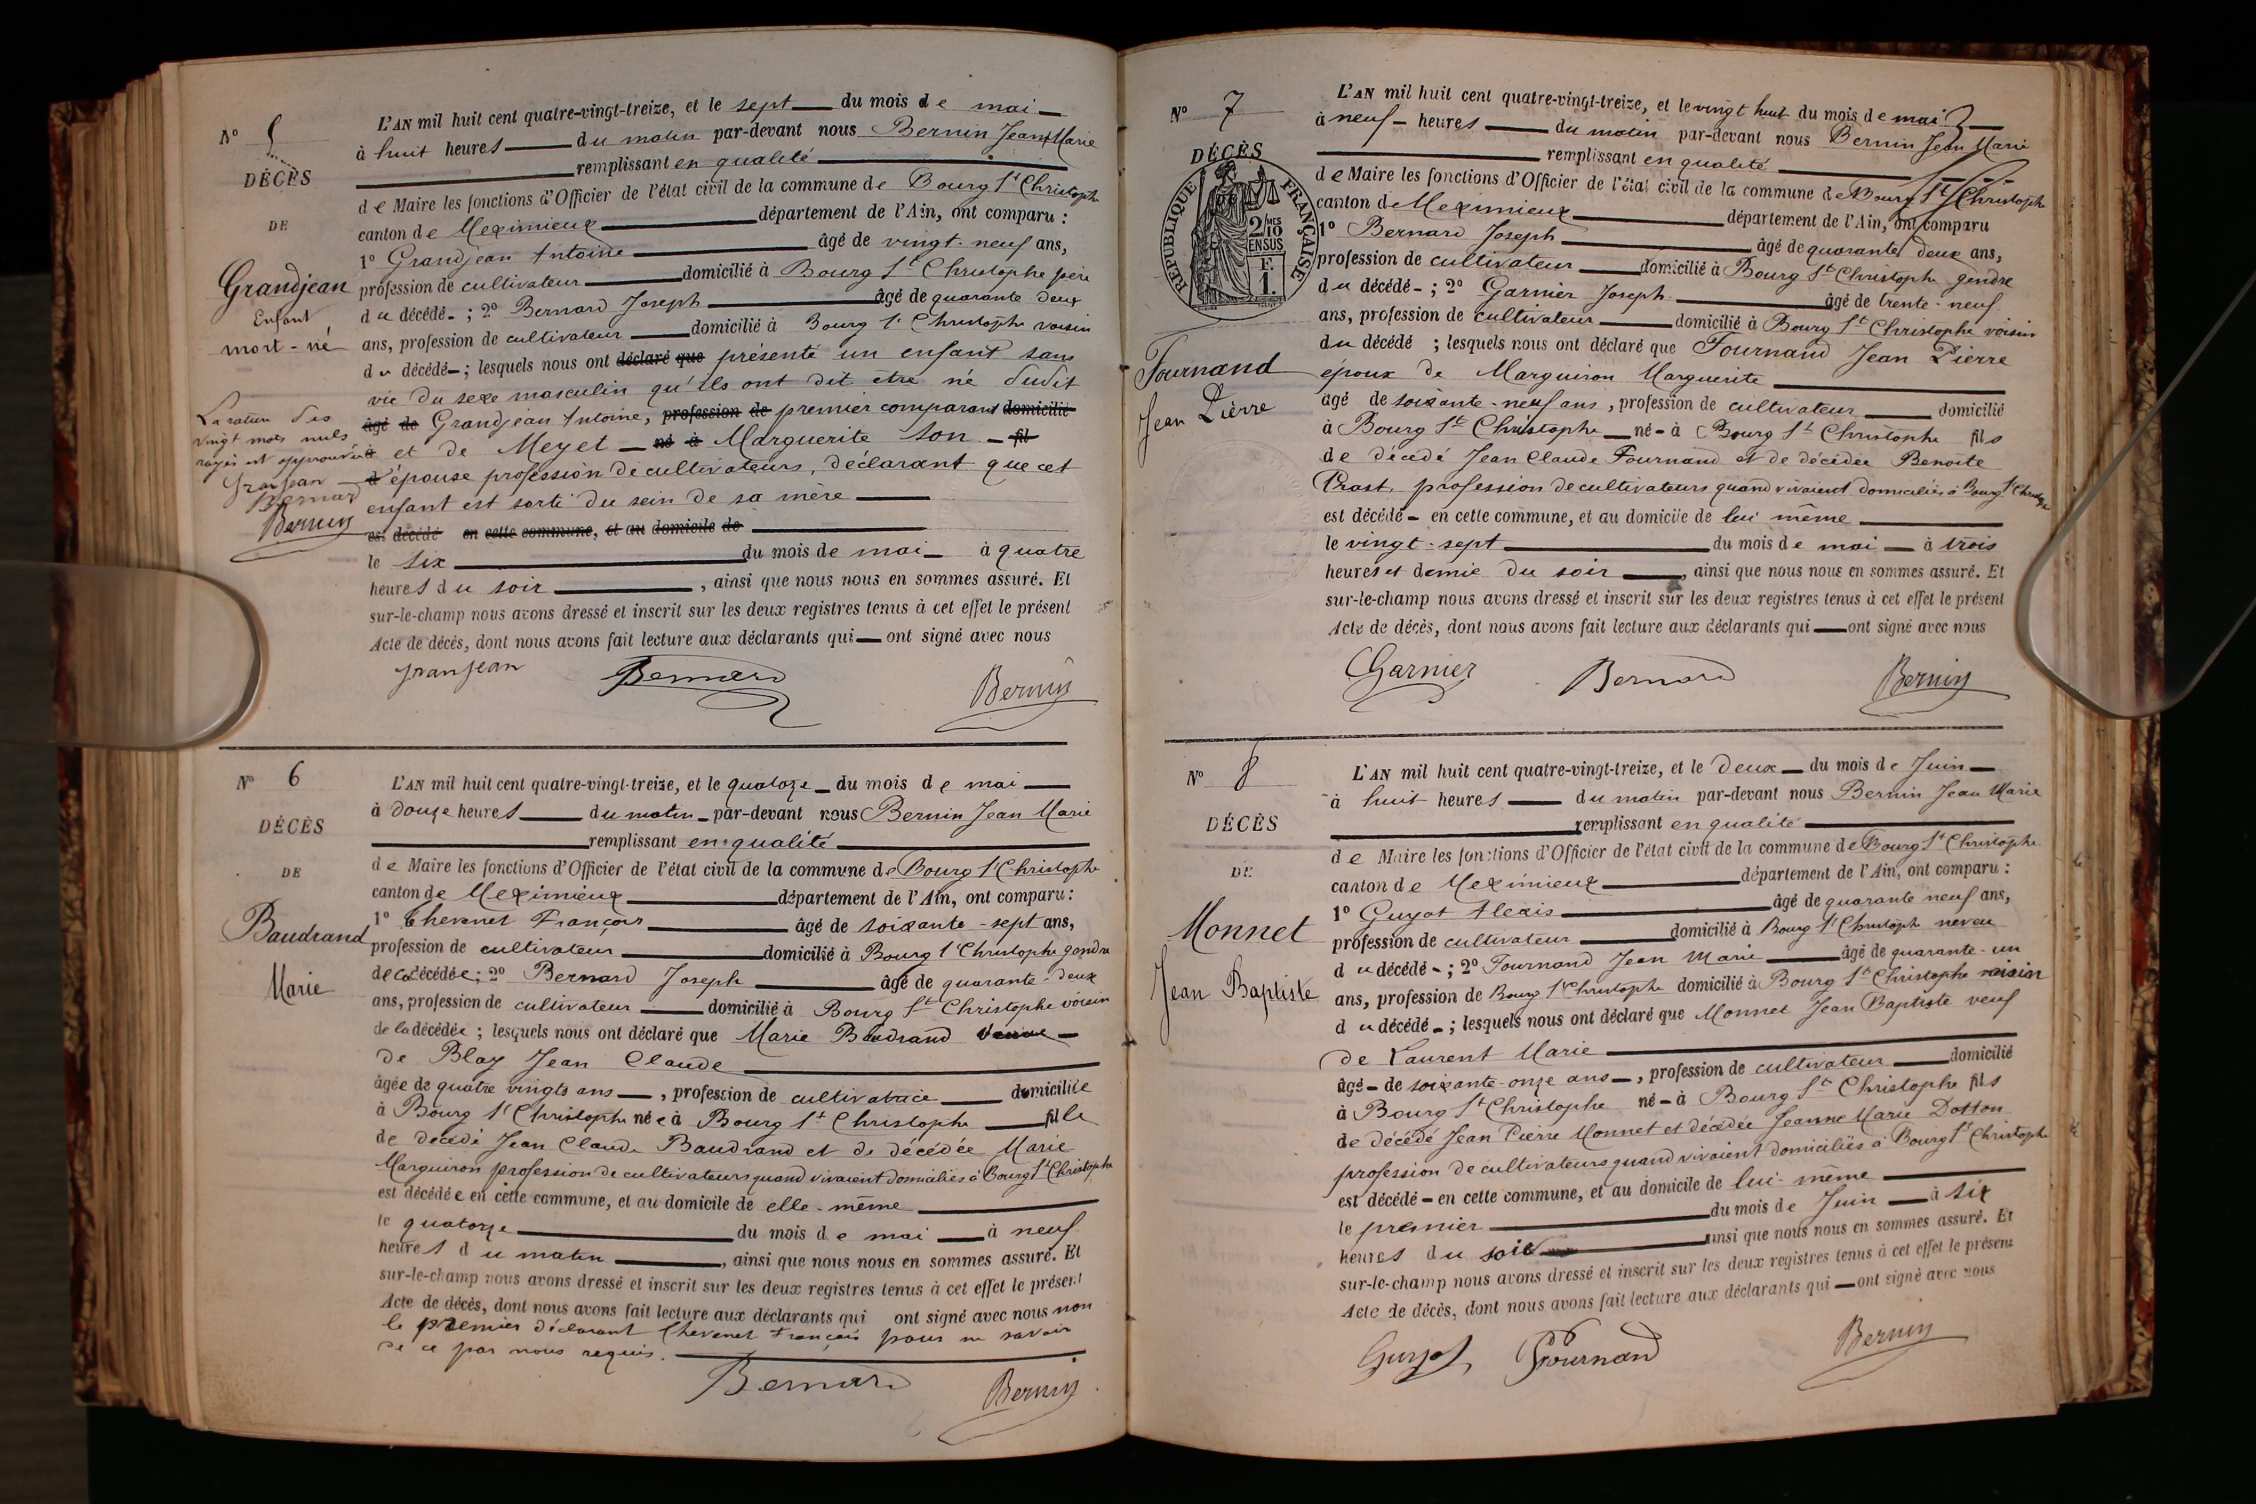 N° 5
DÉCÈS
DE
Grandjean
Enfant
mort-né
L'AN mil huit cent quatre-vingt-treize, et le sept du mois de mai
à huit heures du matin par-devant nous Bernin Jean Marie
remplissant en qualité
de Maire les fonctions d'Officier de l'état civil de la commune de Bourg St Christophe
canton de Meximieux département de l'Ain, ont comparu :
1° Grandjean Antoine âgé de vingt-neuf ans,
profession de cultivateur domicilié à Bourg St Christophe père
du décédé ; 2° Bernard Joseph âgé de quarante deux
ans, profession de cultivateur domicilié à Bourg St Christophe voisin
du décédé ; lesquels nous ont déclaré que présenté un enfant sans
vie du sexe masculin qu'ils ont dit être né dudit
âgé de Grandjean Antoine, profession de premier comparant domicilié
et de Meyet né à Marguerite son fil
d'épouse profession de cultivateurs, déclarant que cet
enfant est sorti du sein de sa mère
est décédé en cette commune, et au domicile de
le six du mois de mai à quatre
heures du soir, ainsi que nous nous en sommes assuré. Et
sur-le-champ nous avons dressé et inscrit sur les deux registres tenus à cet effet le présent
Acte de décès, dont nous avons fait lecture aux déclarants qui ont signé avec nous
granjean Bernard Bernin
vingt mots nuls
rayés et approuvés
granjean
Bernard
Bernin
N° 6
DÉCÈS
DE
Baudrand
Marie
L'AN mil huit cent quatre-vingt-treize, et le quatoze du mois de mai
à douze heures du matin par-devant nous Bernin Jean Marie
remplissant en qualité
de Maire les fonctions d'Officier de l'état civil de la commune de Bourg St Christophe
canton de Meximieux département de l'Ain, ont comparu :
1° Chevenet François âgé de soixante-sept ans,
profession de cultivateur domicilié à Bourg St Christophe gendre
de la décédée ; 2° Bernard Joseph âgé de quarante-deux
ans, profession de cultivateur domicilié à Bourg St Christophe voisin
de la décédée ; lesquels nous ont déclaré que Marie Baudrand veuve
de Blay Jean Claude
âgée de quatre vingts ans, profession de cultivatrice domiciliée
à Bourg St Christophe née à Bourg St Christophe fille
de décédé Jean Claude Baudrand et de décédée Marie
Marguiron profession de cultivateurs quand vivaient domiciliés à Bourg St Christophe
est décédée en cette commune, et au domicile de elle-même
le quatorze du mois de mai à neuf
heures du matin, ainsi que nous nous en sommes assuré. Et
sur-le-champ nous avons dressé et inscrit sur les deux registres tenus à cet effet le présent
Acte de décès, dont nous avons fait lecture aux déclarants qui ont signé avec nous non
le premier déclarant Chevenet François pour ne savoir
de ce par nous requis.
Bernard Bernin
N° 7
DÉCÈS
RÉPUBLIQUE FRANÇAISE
2 MES 10 EN SUS
F. 1.
Fournand
Jean Pierre
L'AN mil huit cent quatre-vingt-treize, et le vingt huit du mois de mai
à neuf heures du matin par-devant nous Bernin Jean Marie
remplissant en qualité
de Maire les fonctions d'Officier de l'état civil de la commune de Bourg St Christophe
canton de Meximieux département de l'Ain, ont comparu
1° Bernard Joseph âgé de quarante deux ans,
profession de cultivateur domicilié à Bourg St Christophe gendre
du décédé ; 2° Garnier Joseph âgé de trente-neuf
ans, profession de cultivateur domicilié à Bourg St Christophe voisin
du décédé ; lesquels nous ont déclaré que Fournand Jean Pierre
époux de Marguiron Marguerite
âgé de soixante-neuf ans, profession de cultivateur domicilié
à Bourg St Christophe né à Bourg St Christophe fils
de décédé Jean Claude Fournand et de décédée Benoite
Prast, profession de cultivateurs quand vivaient domiciliés à Bourg St Christophe
est décédé en cette commune, et au domicile de lui même
le vingt-sept du mois de mai à trois
heures et demie du soir, ainsi que nous nous en sommes assuré. Et
sur-le-champ nous avons dressé et inscrit sur les deux registres tenus à cet effet le présent
Acte de décès, dont nous avons fait lecture aux déclarants qui ont signé avec nous
Garnier Bernard Bernin
N° 8
DÉCÈS
DE
Monnet
Jean Baptiste
L'AN mil huit cent quatre-vingt-treize, et le deux du mois de Juin
à huit heures du matin par-devant nous Bernin Jean Marie
remplissant en qualité
de Maire les fonctions d'Officier de l'état civil de la commune de Bourg St Christophe
canton de Meximieux département de l'Ain, ont comparu :
1° Guyot Alexis âgé de quarante neuf ans,
profession de cultivateur domicilié à Bourg St Christoph neveu
du décédé ; 2° Fournand Jean Marie âgé de quarante-un
ans, profession de Bourg St Christophe domicilié à Bourg St Christophe voisin
du décédé ; lesquels nous ont déclaré que Monnet Jean Baptiste veuf
de Laurent Marie
âgé de soixante-onze ans, profession de cultivateur domicilié
à Bourg St Christophe né à Bourg St Christophe fils
de décédé Jean Pierre Monnet et décédée Jeanne Marie Dotton
profession de cultivateurs quand vivaient domiciliés à Bourg St Christophe
est décédé en cette commune, et au domicile de lui-même
le premier du mois de Juin à six
heures du soir ainsi que nous nous en sommes assuré. Et
sur-le-champ nous avons dressé et inscrit sur les deux registres tenus à cet effet le présent
Acte de décès, dont nous avons fait lecture aux déclarants qui ont signé avec nous
Guyot Fournand Bernin